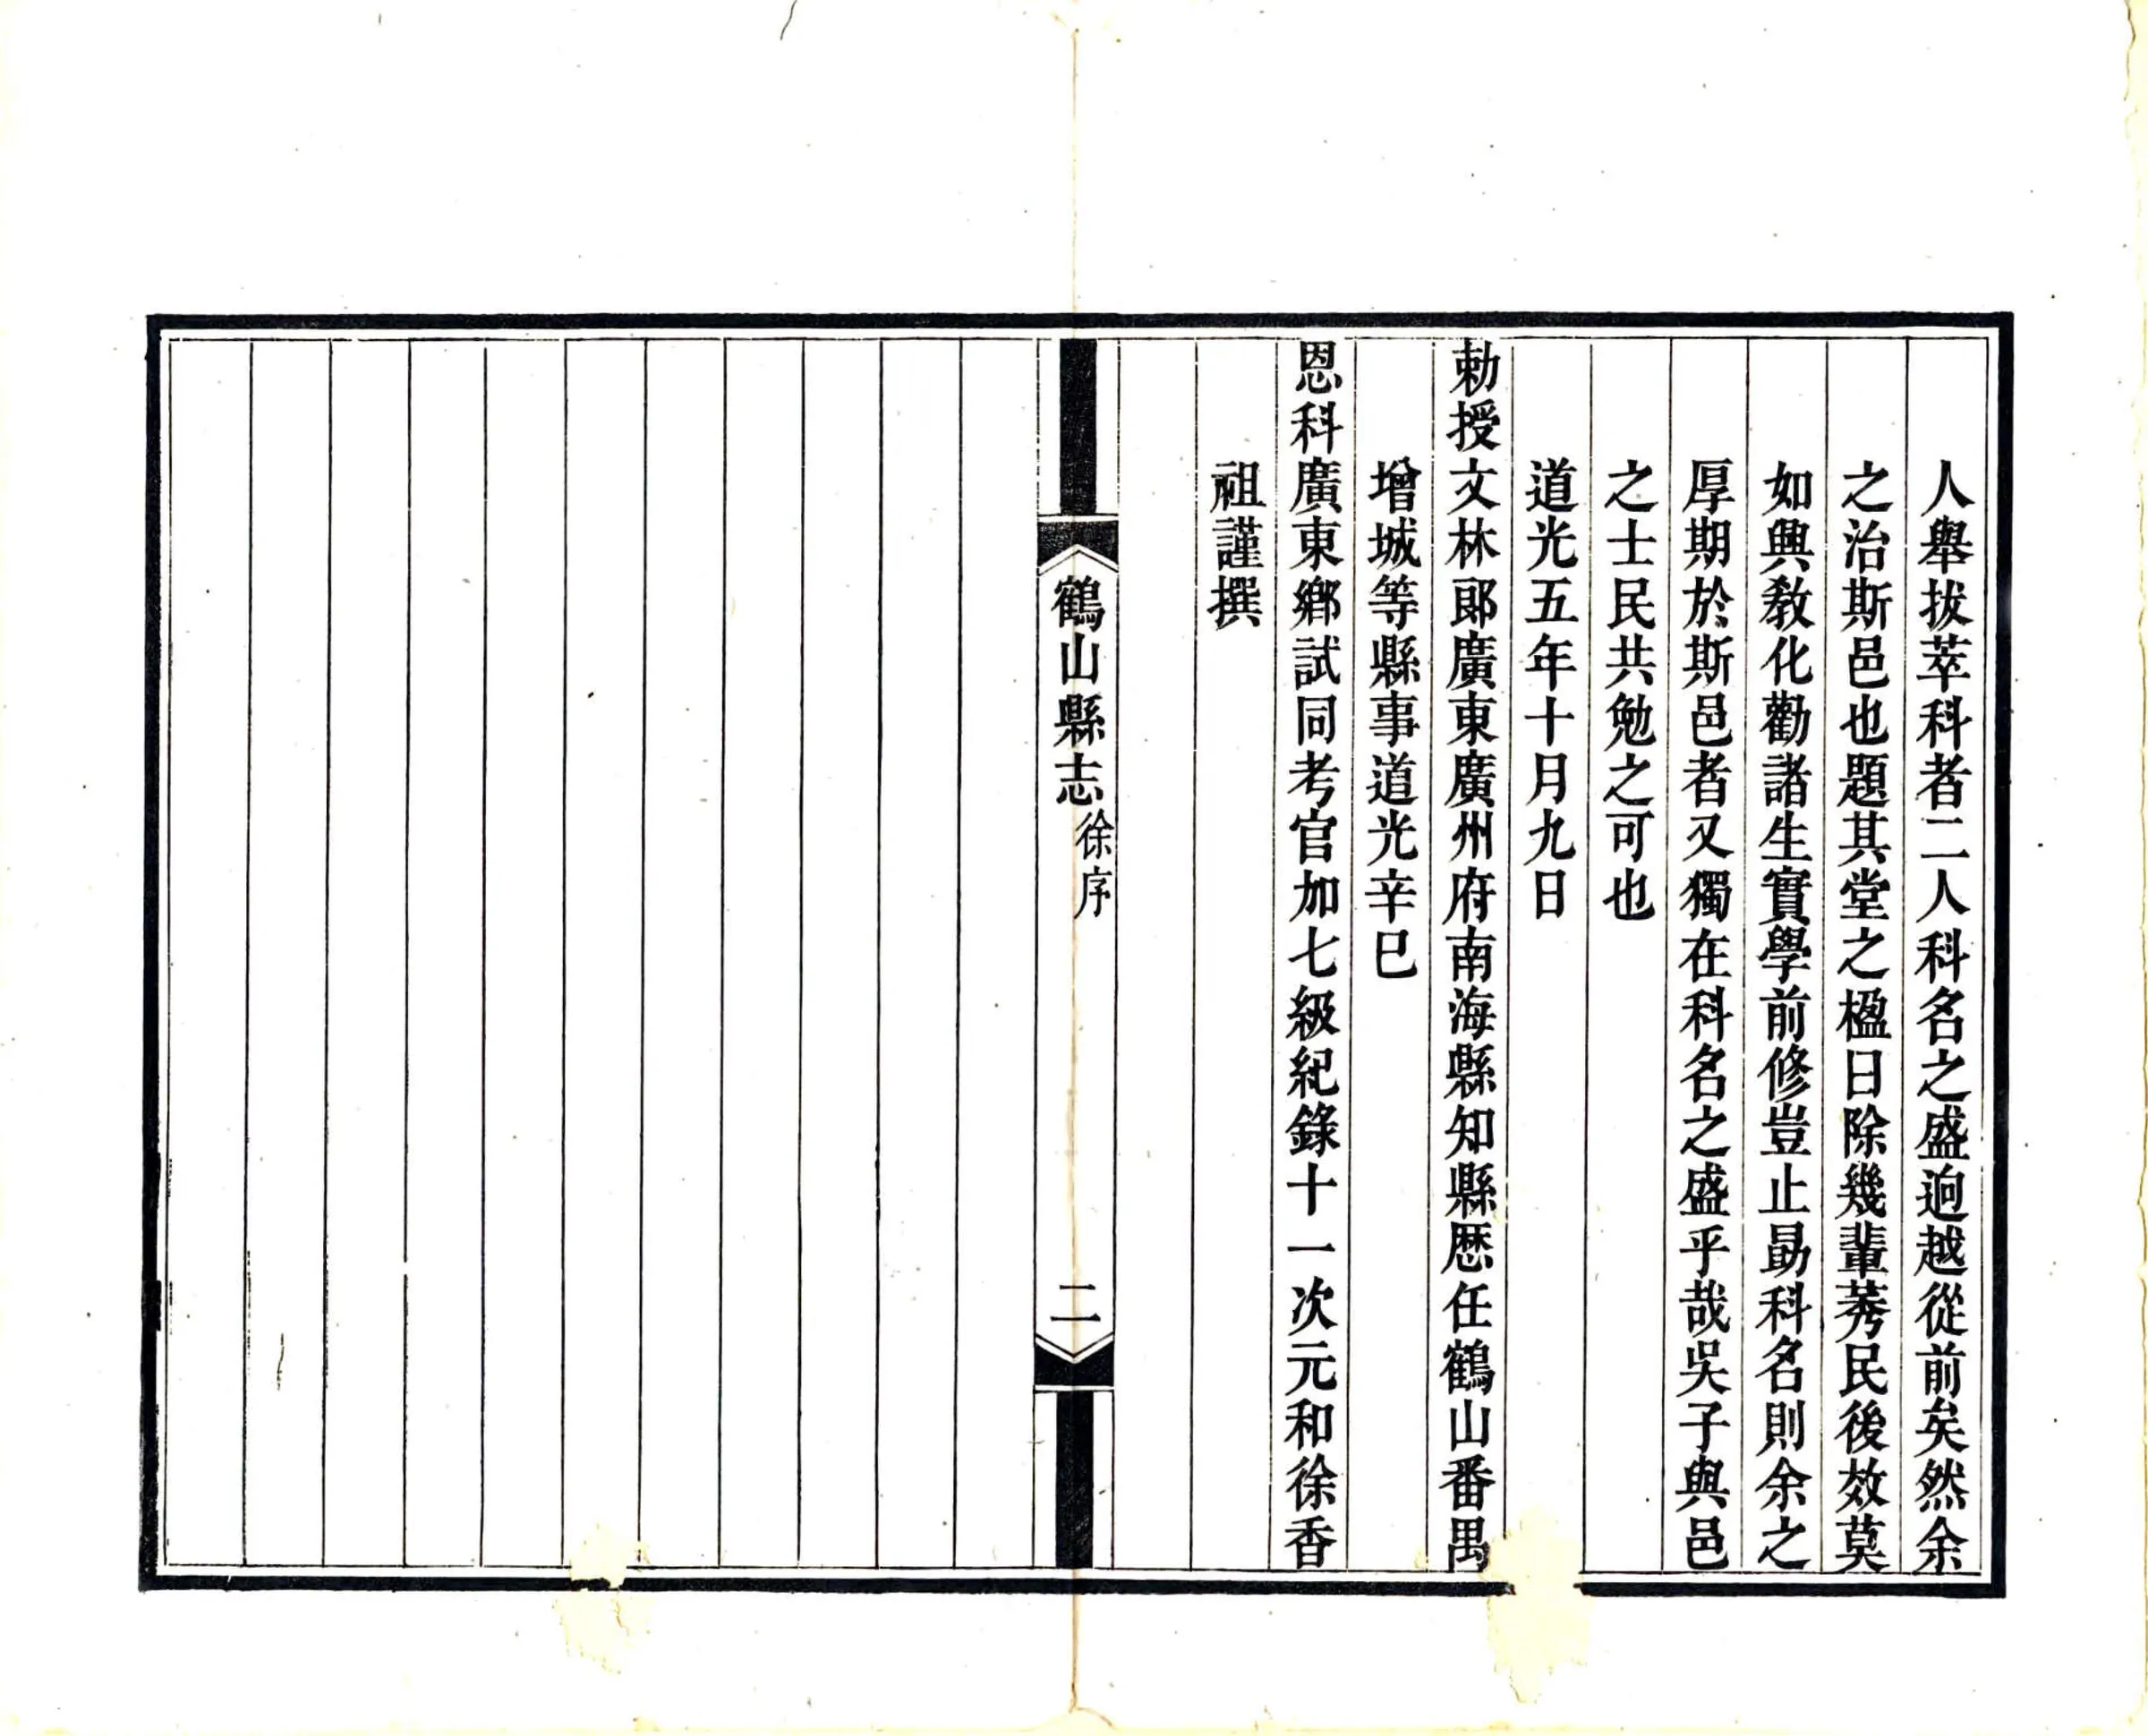 人舉拔萃科者二人科名之盛逈越從前矣然余
之治斯邑也題其堂之楹曰除幾輩莠民後效莫
如興教化勸諸生實學前修豈止勗科名則余之
厚期於斯邑者又獨在科名之盛乎哉吳子與邑
之士民共勉之可也
道光五年十月九日
勅授文林郎廣東廣州府南海縣知縣歴任鶴山番禺
增城等縣事道光辛巳
恩科廣東鄉試同考官加七級紀錄十一次元和徐香
祖謹撰
鶴山縣志 徐序 二